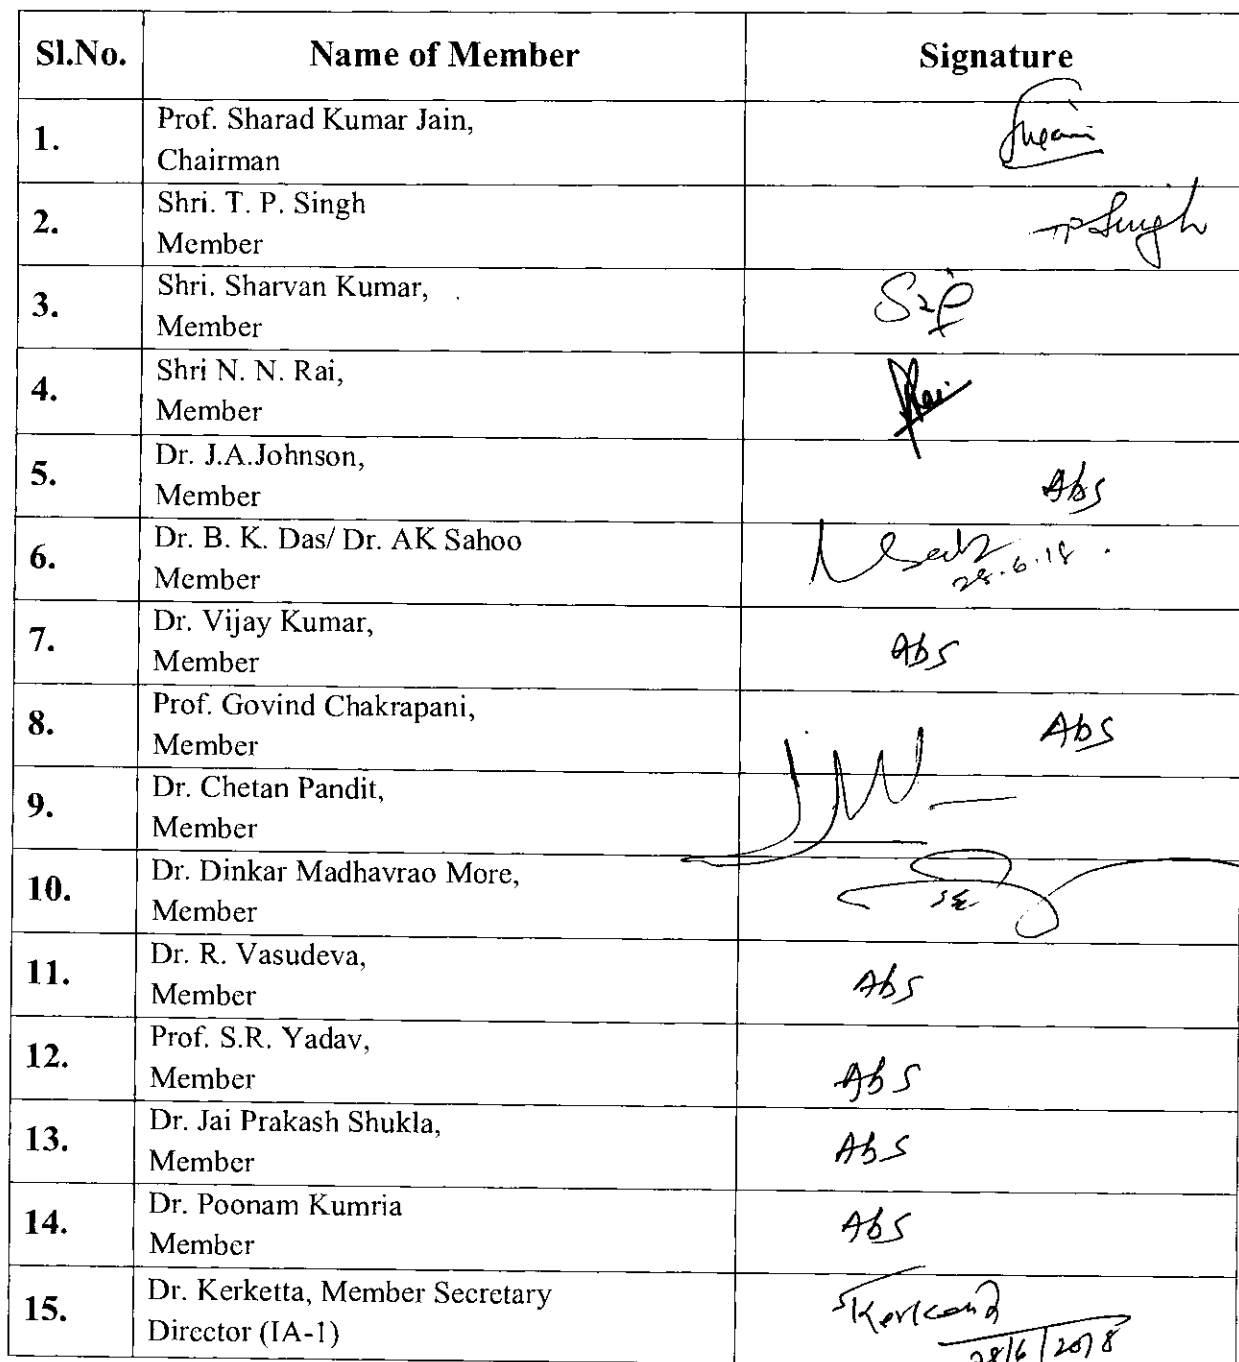 Sl.No. Name of Member Signature
1. Prof. Sharad Kumar Jain,
Chairman
2. Shri. T. P. Singh
Member
TPSingh
3. Shri. Sharvan Kumar,
Member
4. Shri N. N. Rai,
Member
Rai
5. Dr. J.A.Johnson,
Member
Abs
6. Dr. B. K. Das/ Dr. AK Sahoo
Member
28.6.18
7. Dr. Vijay Kumar,
Member
Abs
8. Prof. Govind Chakrapani,
Member
Abs
9. Dr. Chetan Pandit,
Member
10. Dr. Dinkar Madhavrao More,
Member
11. Dr. R. Vasudeva,
Member
Abs
12. Prof. S.R. Yadav,
Member
Abs
13. Dr. Jai Prakash Shukla,
Member
Abs
14. Dr. Poonam Kumria
Member
Abs
15. Dr. Kerketta, Member Secretary
Director (IA-1)
28/6/2018